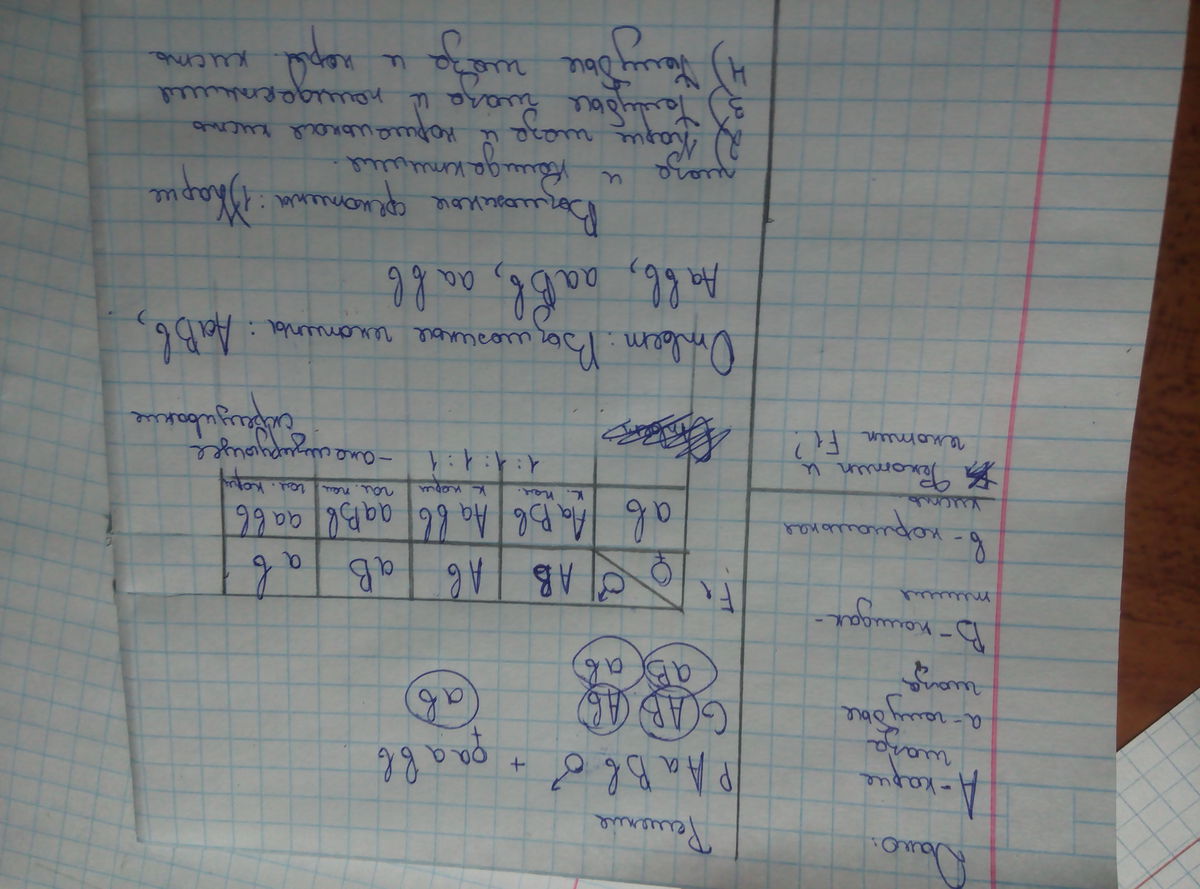 Дано:
А-карие
глаза
а-голубые
глаза
В-полидак-
тилия
в-нормальная
кисть
Фенотип и
генотип F1?
Решение
Р АаВв ♂ + ♀аавв
G АВ Ав ав
аВ ав
F1
♀ ♂ АВ Ав аВ ав
ав АаВв Аавв ааВв аавв
к. пол. к. норм гол. пол гол. норм
1:1:1:1 -анализирующее
скрещивание
Ответ: Возможные генотипы: АаВв,
Аавв, ааВв, аавв
Возможные фенотипы: 1) Карие
глаза и полидактилия.
2) Карие глаза и нормальная кисть
3) Голубые глаза и полидактилия
4) Голубые глаза и норм. кисть